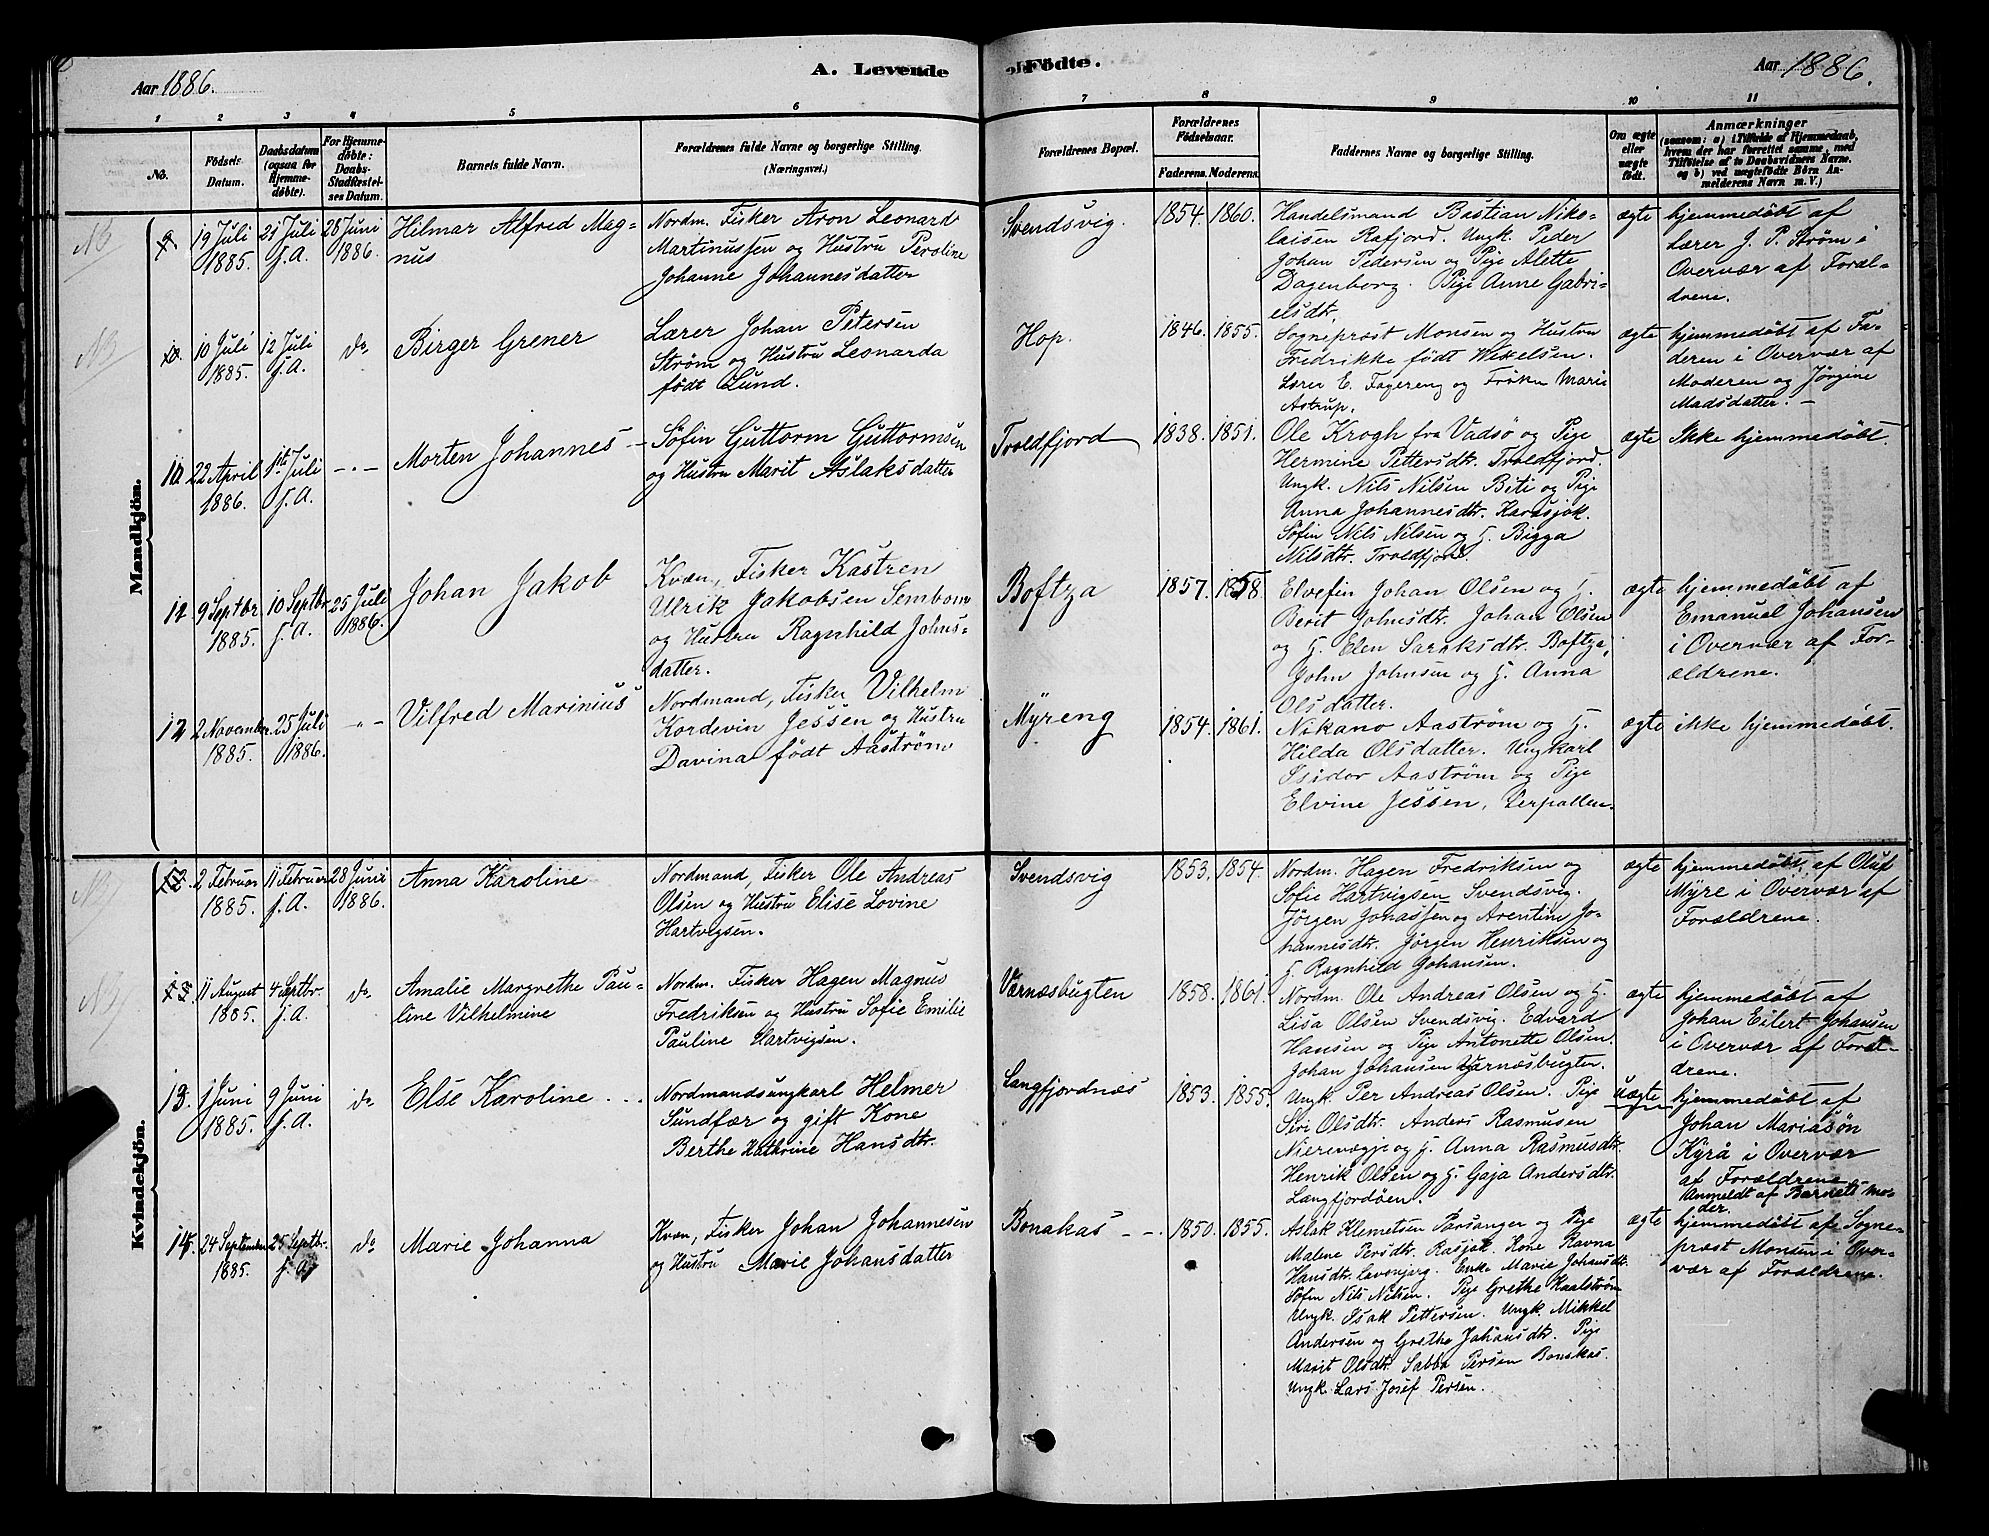 Aar 1886.
A. Levende
1 2 3 4 5 6
No.
Fødsels-
Datum.
Daabsdatum
(ogsaa for
Hjemme-
døbte).
For Hjemme-
døbte:
Daabs-
Stadfæstel-
ses Datum.
Barnets fulde Navn.
Forældrenes fulde Navne og borgerlige Stilling.
(Næringsvei.)
Fødte.
Aar 1886.
7 8 9 10 11
Forældrenes Bopæl.
Forældrenes
Fødselsaar.
Faderens. Moderens.
Faddernes Navne og borgerlige Stilling.
Om ægte
eller
uægte
født.
Anmærkninger
(saasom: a) i Tilfælde af Hjemmedaab,
hvem der har forrettet samme, med
Tilføielse af to Daabsvidners Navne.
og b) ved uægtefødte Børn An-
melderens Navn m. V.)
Mandkjøn.
NB
9
19 Juli
1885.
21 Juli
s. A.
28 Juni
1886.
Hilmar Alfred Mag-
nus
Nordm. Fisker Aron Leonard
Martinussen og Hustru Peroline
Johanne Johannesdatter
Svendsvig.
1854. 1860.
Handelsmand Bastian Niko-
laisen Rafjord. Ungk. Peder
Johan Pedersen og Pige Alette
Dagenborg. Pige Anne Gabri-
elsdtr.
ægte
hjemmedøbt af
Lærer J. P. Strøm i
Overvær af Foræl-
drene.
NB
10.
10 Juli
1885.
12 Juli
s. A.
do
Birger Grener
Lærer Johan Petersen
Strøm og Hustru Leonarda
født Lund.
Hop.
1846. 1855.
Sogneprest Monsen og Hustru
Fredrikke født Wexelsen.
Lærer E. Fagereng og Frøken Marie
Astrup.
ægte
hjemmedøbt af Fa-
deren i Overvær af
Moderen og Jørgine
Madsdatter. –
10.
22 April
1886.
1ste Juli
s. A.
-.-
Morten Johannes
Søfin Guttorm Guttormsen
og Hustru Marit Aslaksdatter
Troldfjord
1838. 1851.
Ole Krogh fra Vadsø og Pige
Hermine Pettersdtr. Troldfjord.
Ungk. Nils Nilsen Biti og Pige
Anna Johannesdtr. Karasjok.
Søfin Nils Nilsen og H. Bigga
Nilsdtr. Troldfjord.
ægte
Ikke hjemmedøbt.
11
9 Septbr.
1885.
10 Septbr.
s. A.
25 Juli
1886.
Johan Jakob
Kvæn, Fisker Kastren
Ulrik Jakobsen Sembom
og Hustru Ragnhild Johns-
datter.
Boftza
1857. 1858.
Elvefin Johan Olsen og H.
Berit Johnsdtr. Johan Olsen
og H. Elen Saraksdtr. Boftza,
John Johnsen og H. Anna
Olsdatter.
ægte
hjemmedøbt af
Emanuel Johansen
i Overvær af For-
ældrene.
12
2 November
1885.
25 Juli
1886.
-„-
Vilfred Marinius
Nordmand, Fisker Vilhelm
Kordevin Jessen og Hustru
Davina født Aastrøm
Myreng
1854. 1861.
Nikano Aastrøm og H.
Hilda Olsdatter. Ungkarl
Isidor Aastrøm og Pige
Elvine Jessen, Verpallen.
ægte
ikke hjemmedøbt.
Kvindekjøn.
12.
2 Februar
1885.
11 Februar
s. A.
28 Juni
1886.
Anna Karoline
Nordmand, Fisker Ole Andreas
Olsen og Hustru Elise Lovine
Hartvigsen.
Svendsvig
1853. 1854.
Nordm. Hagen Fredriksen og
Sofie Hartvigsen Svendsvig.
Jørgen Johassen og Arentine Jo-
hannesdtr. Jørgen Henriksen og
H. Ragnhild Johansen.
ægte
hjemmedøbt af Oluf
Myre i Overvær af
Forældrene.
13.
11 August
1885.
4 Septbr.
s. A.
do
Amalie Margrethe Pau-
line Vilhelmine
Nordm. Fisker Hagen Magnus
Fredriksen og Hustru Sofie Emilie
Pauline Hartvigsen.
Værnæsbugten
1858. 1861.
Nordm. Ole Andreas Olsen og H.
Lisa Olsen Svendsvig. Edvard
Hansen og Pige Antonette Olsen.
Johan Johansen Værnæsbugten.
ægte
hjemmedøbt af
Johan Eilert Johansen
i Overvær af Foræl-
drene.
13.
1 Juni
1885.
9 Juni
s. A.
do
Else Karoline
Nordmandsungkarl Helmer
Sundfær og gift Kone
Berthe Kathrine Hansdtr.
Langfjordnæs
1853. 1855.
Ungk. Per Andreas Olsen. Pige
Siri Olsdtr. Anders Rasmusen
Nierenægje og H. Anna Rasmusdtr.
Henrik Olsen og H. Gaja Andersdtr.
Langfjordøen.
uægte
hjemmedøbt af
Johan Mariasøn
Kyrå i Overvær
af Forældrene.
Anmeldt af Barnets Mo-
der.
14.
24 September
1885.
25 Septbr.
s. A.
do
Marie Johanna
Kvæn, Fisker Johan Johannesen
og Hustru Marie Johansdatter
Bonakas
1850. 1855.
Aslak Klemetsen Porsanger og Pige
Malene Persdtr. Rasjok. Kone Ravna
Hansdtr. Lavonjarg. Enke Marie Johansdtr.
Søfin Nils Nilsen. Pige Grethe Kaalstrøm
Ungk. Isak Pettersen. Ungk. Mikkel
Andersen og Grethe Johansdtr. Pige
Marit Olsdtr. Sabba Persen Bonakas.
Ungk. Lars Josef Persen.
ægte
hjemmedøbt af Sogne-
præst Monsen i Over-
vær af Forældrene.